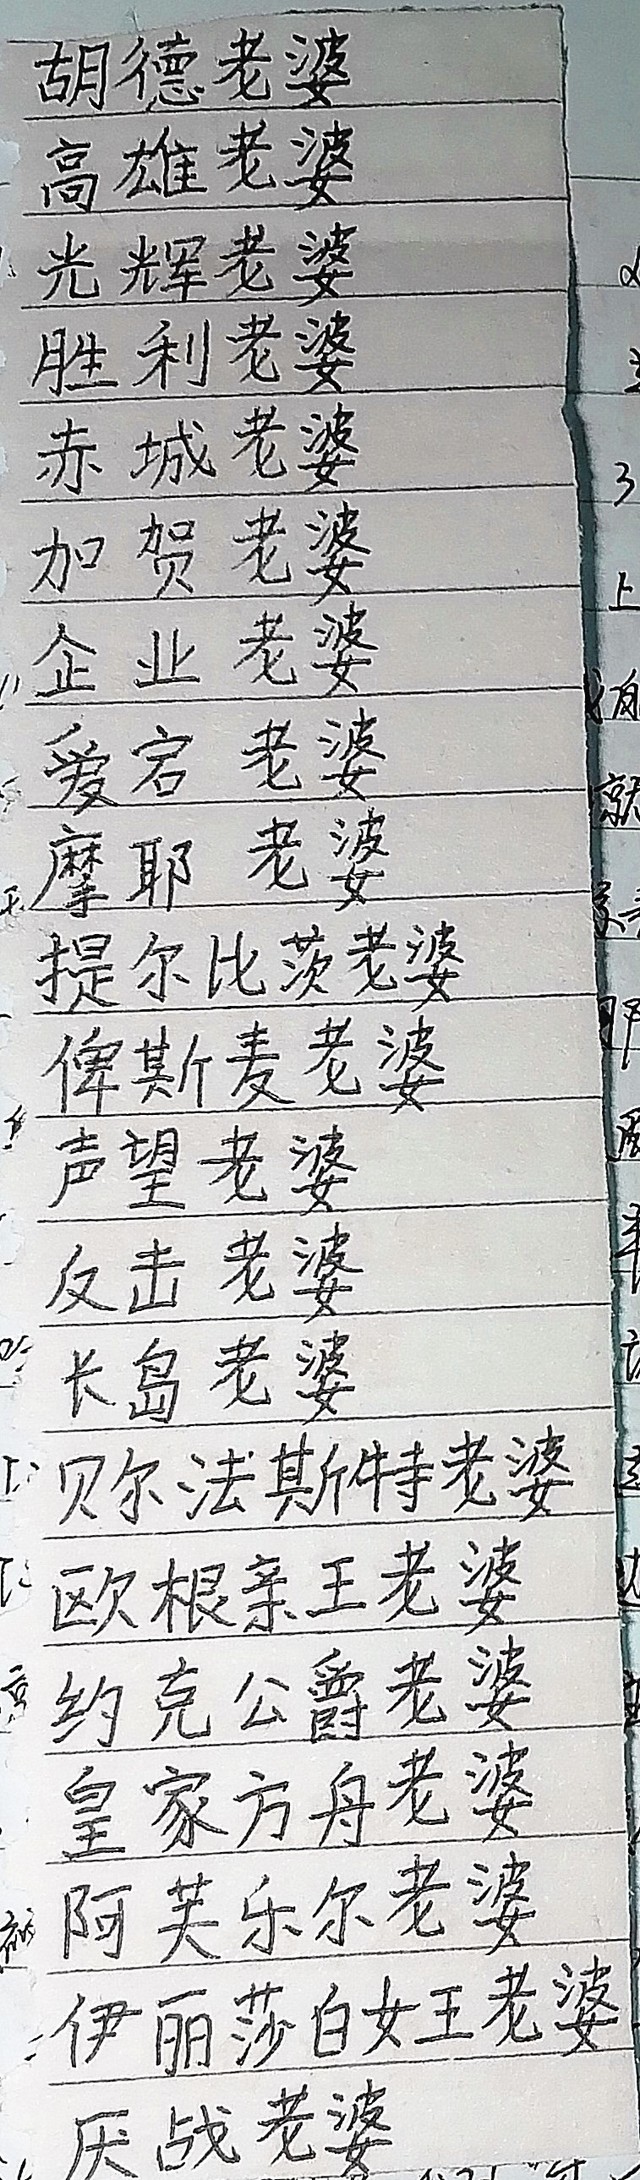 胡德老婆
高雄老婆
光辉老婆
胜利老婆
赤城老婆
加贺老婆
企业老婆
爱宕老婆
摩耶老婆
提尔比茨老婆
俾斯麦老婆
声望老婆
反击老婆
长岛老婆
贝尔法斯特老婆
欧根亲王老婆
约克公爵老婆
皇家方舟老婆
阿芙乐尔老婆
伊丽莎白女王老婆
厌战老婆